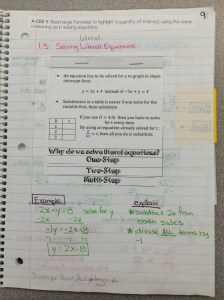 9
A-CED 4 Rearrange formulas to highlight a quantity of interest using the same
reasoning as in solving equations.
Literal
1.3 Solving Literal Equations
An equation has to be solved for y to graph in slope-
intercept form.
y = 2x + 4 instead of -2x + y = 4
Substitution in a table is easier if you solve for the
variable first, then substitute.
for t every time.
By using an equation already solved for t:
Why do we solve literal equations?
One-Step
Two-Step
Multi-Step
Example
-2x-y=8 solve for y
-1y=-2x+8
y=2x-8
explain
subtract 2x from
both sides
divide ALL terms by
-1